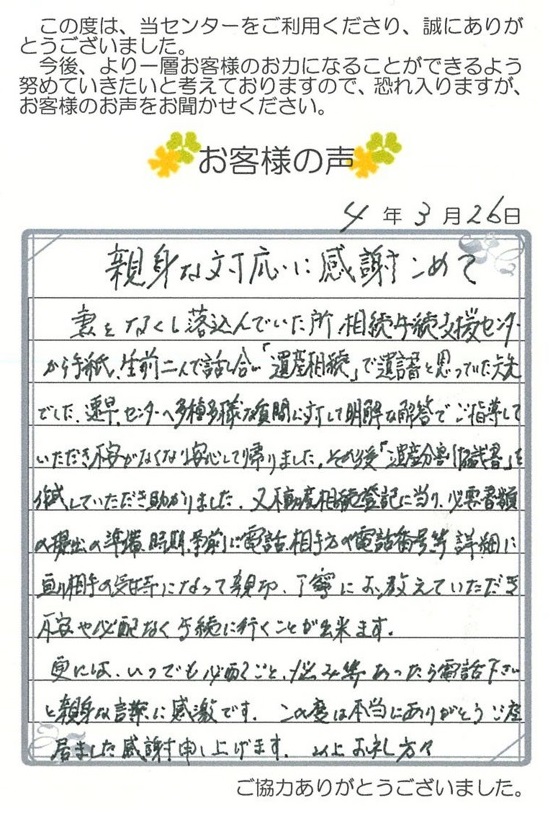 この度は、当センターをご利用くださり、誠にありが
とうございました。
今後、より一層お客様のお力になることができるよう
努めていきたいと考えておりますので、恐れ入りますが、
お客様のお声をお聞かせください。
お客様の声
4 年 3 月 26 日
親身な対応いに感謝こめて
妻をなくし落込んでいた所、相続手続支援センター
から手紙、生前二人で話し合い「遺産相続」で遺言書と思っていた矢先
でした。速早、センターへ多種多様な質問に対して明解な解答でご指導して
いただき不安がなくなり安心して帰りました。その後「遺産分割協議書」を
作成していただき助かりました。又不動産相続登記に当り、必要書類
の提出の準備、時期、事前に電話、相手方の電話番号等詳細に
相手の気持になって親切、丁寧にお教えていただき
不安や心配なく手続に行くことが出来ます。
更には、いつでも心配ごと、悩み等あったら電話下さい
と親身な言葉に感激です。この度は本当にありがとうご座
居ました感謝申し上げます。以上お礼方々
ご協力ありがとうございました。